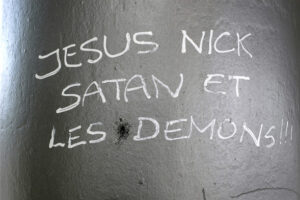 JESUS NICK
SATAN ET
LES DEMONS!!!